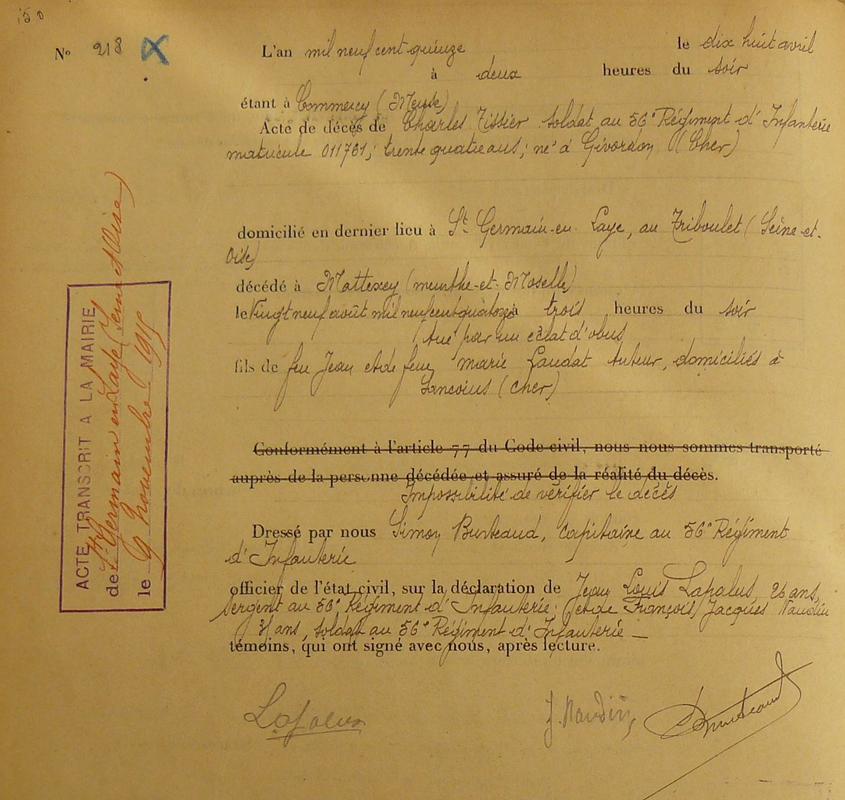 150
N° 218 X
L'an mil neuf cent quinze le dix huit avril
à deux heures du soir
étant à Commercy (Meuse)
Acte de décès de Charles Tissier soldat au 56e Régiment d'Infanterie
matricule 011761; trente quatre ans; né à Givordon (Cher)
domicilié en dernier lieu à St Germain-en Laye, au Triboulet (Seine-et-
Oise)
décédé à Mattexey (meurthe-et-Moselle)
le Vingt neuf août mil neuf cent quatorze à trois heures du soir
Tué par un éclat d'obus
fils de feu Jean et de feue marie Laudat Auteur, domiciliés à
Sancoins (Cher)
Conformément à l'article 77 du Code civil, nous nous sommes transporté
auprès de la personne décédée et assuré de la réalité du décès.
Impossibilité de vérifier le décès
Dressé par nous Simon Burteaud, Capitaine au 56e Régiment
d'Infanterie
officier de l'état civil, sur la déclaration de Jean Louis Lapalus, 26 ans,
sergent au 56e Régiment d'Infanterie; et de François Jacques Naudin
31 ans, soldat au 56e Régiment d'Infanterie
témoins, qui ont signé avec nous, après lecture.
Lapalus J. Naudin Burteaud
ACTE TRANSCRIT A LA MAIRIE
de St Germain en Laye (Seine et Oise)
le 9 novembre 1915